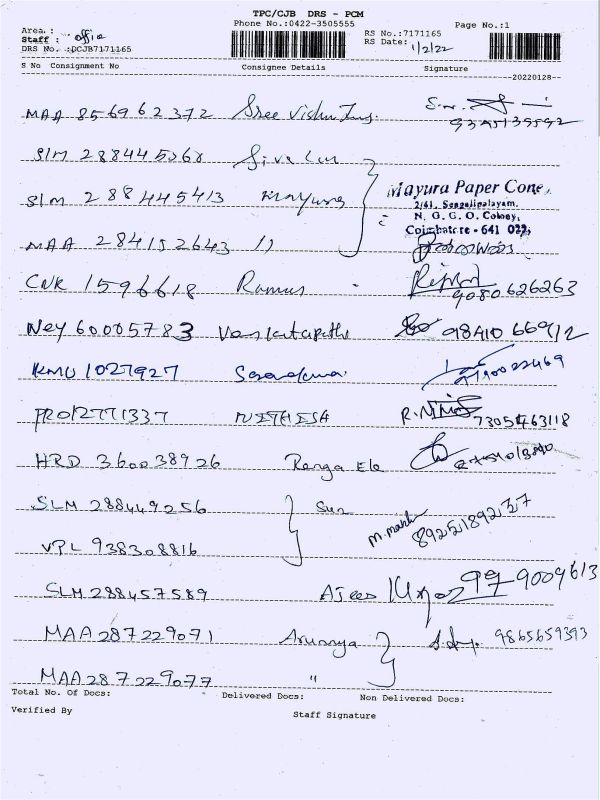 TPC/CJB DRS - PCM
Phone No.:0422-3505555
Page No.:1
Area :
Staff : office
DRS No. :DCJB7171165
RS No.:7171165
RS Date: 1/2/22
S No Consignment No Consignee Details Signature
20220128
MAA 856962372 Sree Vishnu
9395139592
SLM 288445268 Siva
SLM 288445413 Mayura
Mayura Paper Cone,
2/41, Sengalipalayam,
N. G. G. O. Colony,
Coimbatore - 641 022,
MAA 284152643 11
CNR 1596618 Ramus 9080626263
Ney 60005783 Venkatapathi 98410 66912
KMU 1027927
PRO12771337 NITHESA R. 7305463118
HRD 360038926 Renga Ele
SLM 288449256 Sun
8925189237
VPL 938308816
SLM 288457589 Ajees 9009613
MAA 287229071 Arunnya 9865659393
MAA 287229077 "
Total No. Of Docs: Delivered Docs: Non Delivered Docs:
Verified By
Staff Signature